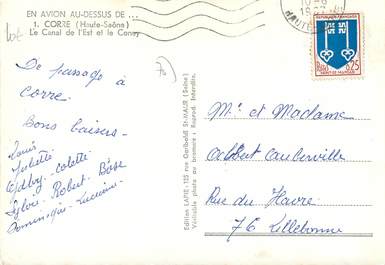 EN AVION AU-DESSUS DE ...
1. CORRE (Haute-Saône)
Le Canal de l'Est et le Coney
De passage à
Corre.
Bons baisers.
Louis
Juliette
Colette
Sylvie. Robert. Base
Dominique. Lucienne
70
Edition LAPIE - 125 rue Garibaldi St-MAUR (Seine)
Véritable photo au bromure : Reprod. Interdite.
REPUBLIQUE FRANÇAISE
0,25
MONT-DE-MARSAN
Mr et Madame
Albert Cauberville
Rue du Havre
76 Lillebonne